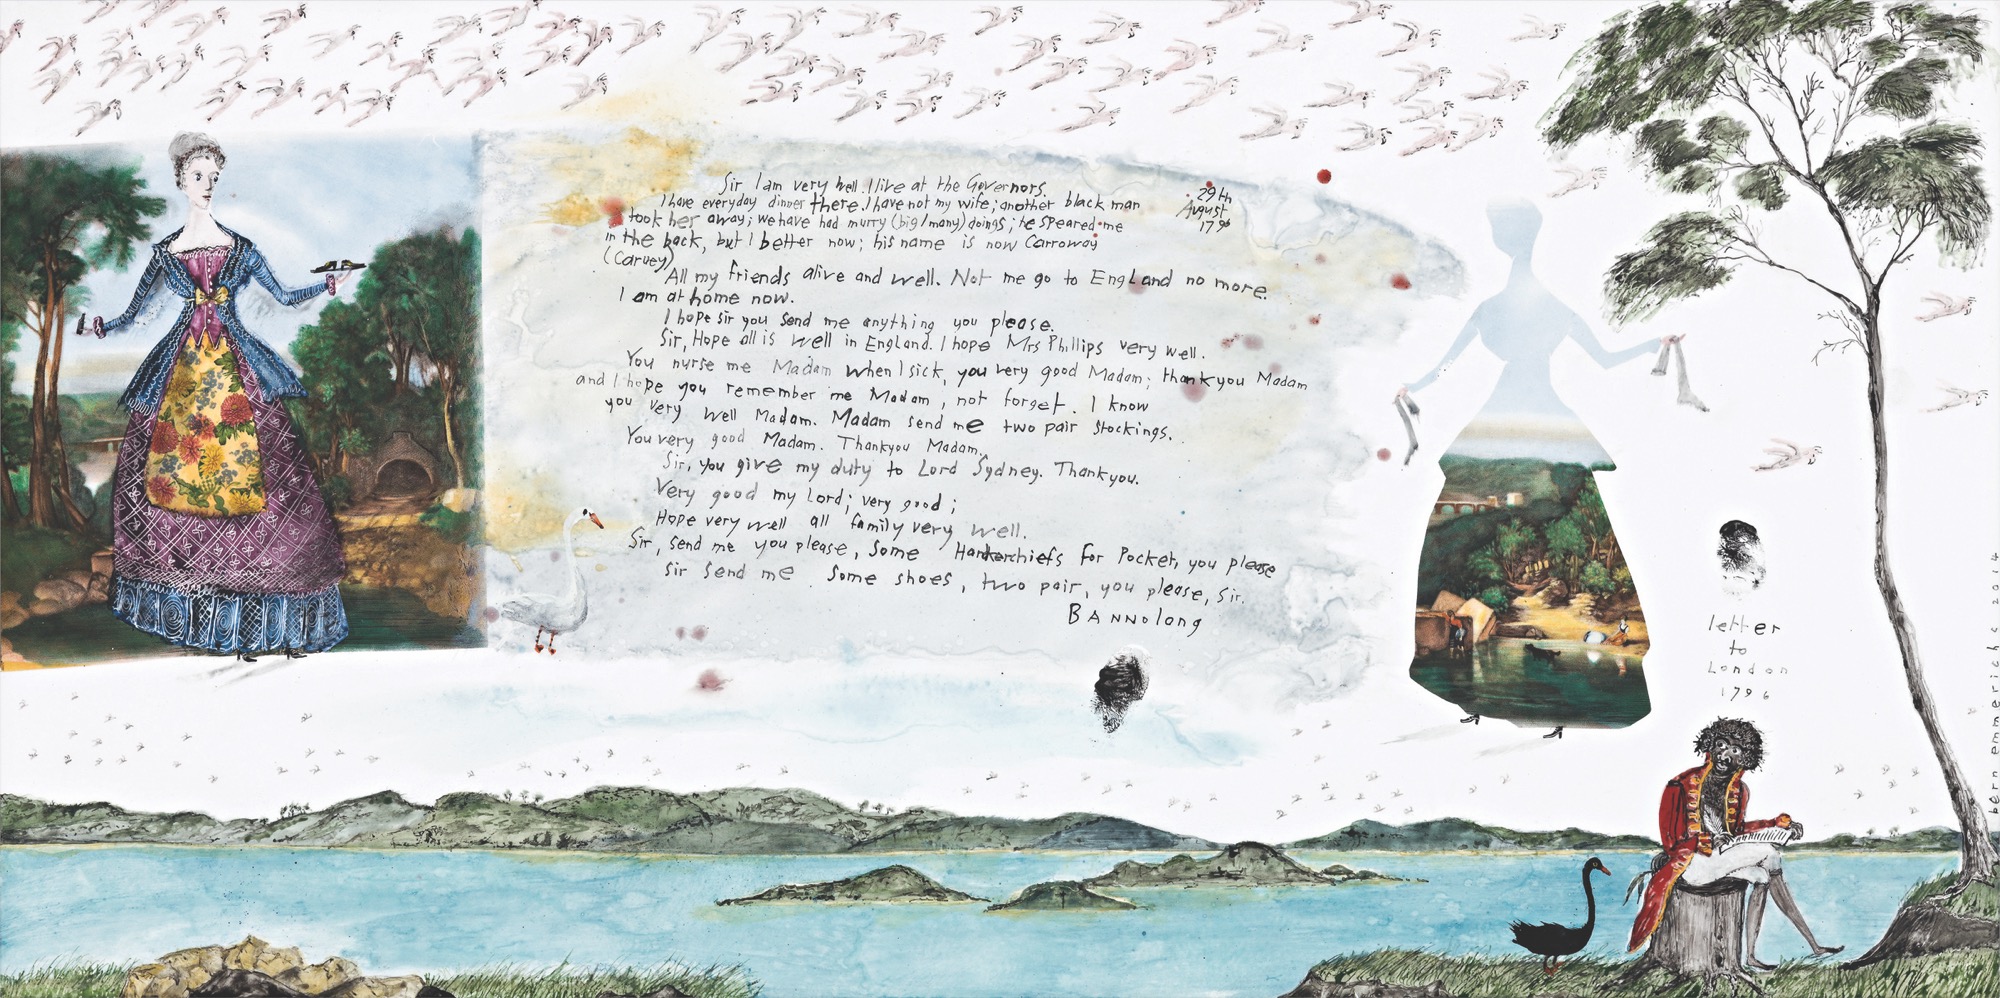 Sir I am very well. I live at the Governors.
I have everyday dinner there. I have not my wife; another black man
took her away; we have had murry (big/many) doings; he speared me
in the back, but I better now; his name is now Carroway
(Carvey)
29th
August
1796
All my friends alive and well. Not me go to England no more.
I am at home now.
I hope sir you send me anything you please.
Sir, Hope all is well in England. I hope Mrs Phillips very well.
You nurse me Madam when I sick, you very good Madam; thankyou Madam
and I hope you remember me Madam, not forget. I know
you very well Madam. Madam send me two pair Stockings.
You very good Madam. Thankyou Madam.
Sir, you give my duty to Lord Sydney. Thankyou.
Very good my Lord; very good;
Hope very well all family very well.
Sir, send me you please, Some Hankerchiefs for Pocket, you please
Sir Send me Some shoes, two pair, you please, Sir.
BANNolong
letter
to
London
1796
bern emmerichs 2014